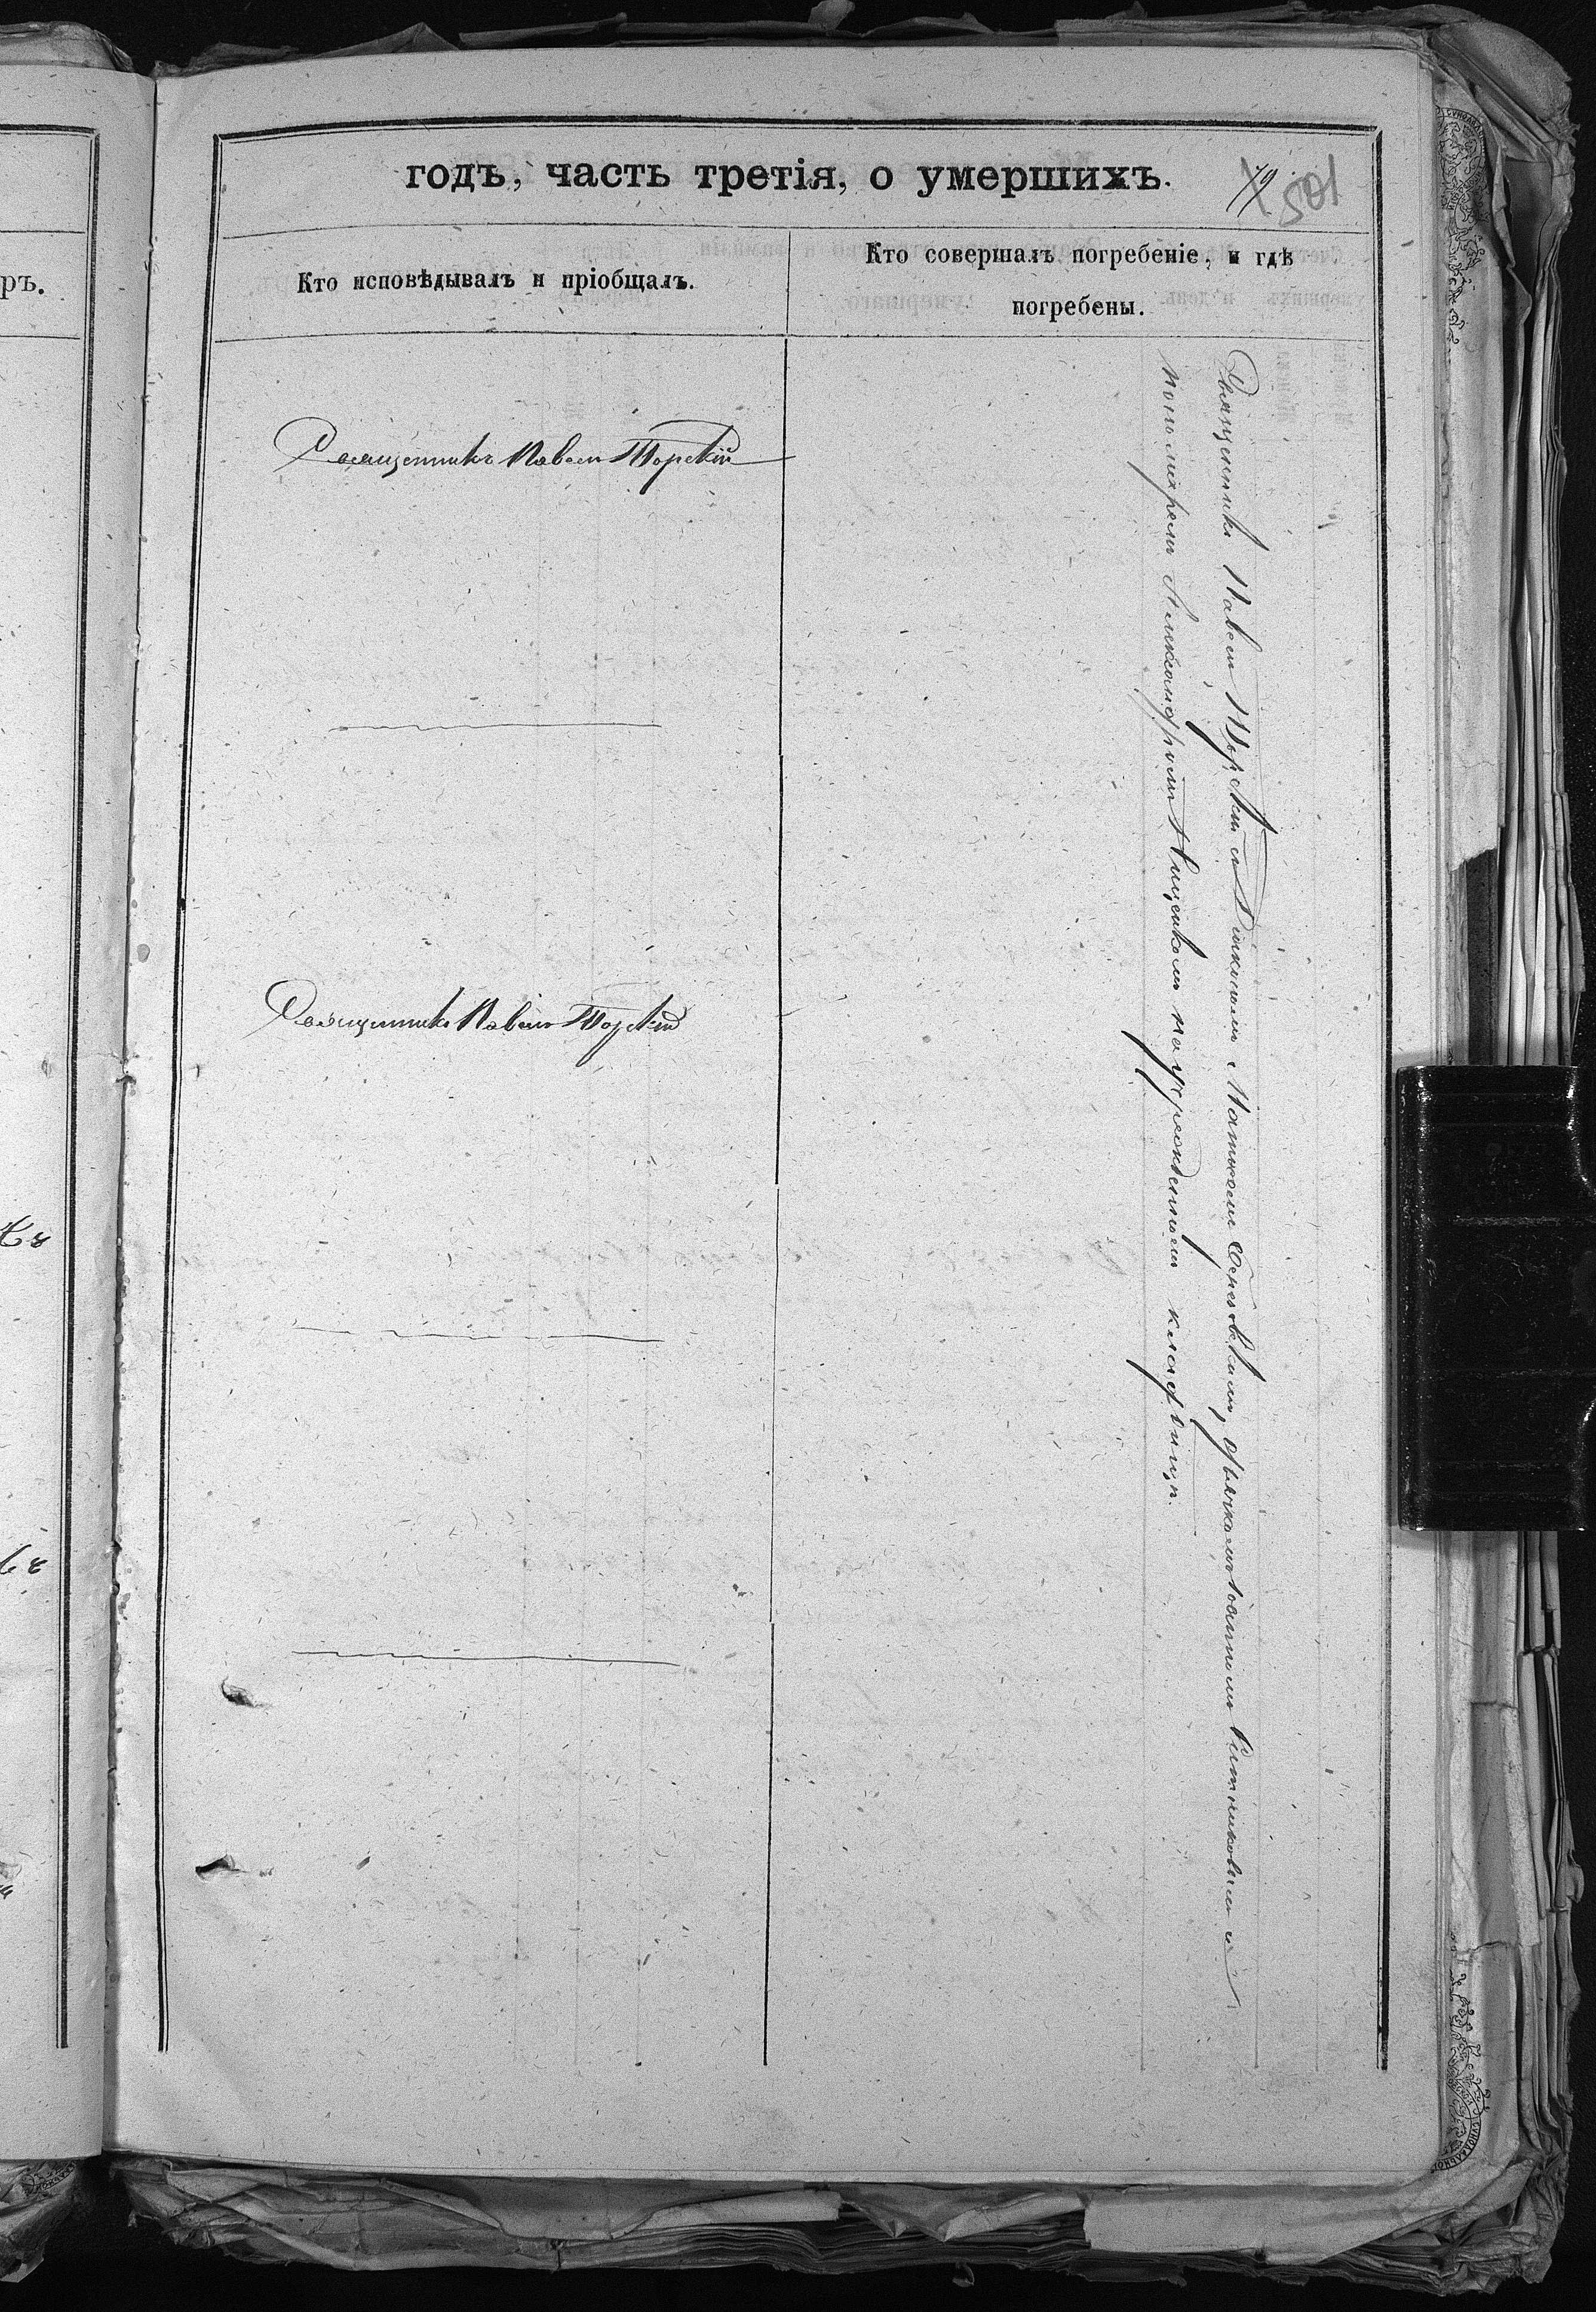 годъ, часть третія, о умершихъ.
79
501
ръ.
Кто исповѣдывалъ и пріобщалъ.
Кто совершалъ погребеніе, и гдѣ
погребены.
Священникъ Павелъ Торскій
Священникъ Павелъ Торскій
Священникъ Павелъ Торскій съ Діакономъ Матвѣемъ дьячкомъ Іоанномъ Ситниковымъ и
пономаремъ Александромъ на учрежденномъ кладбищѣ.